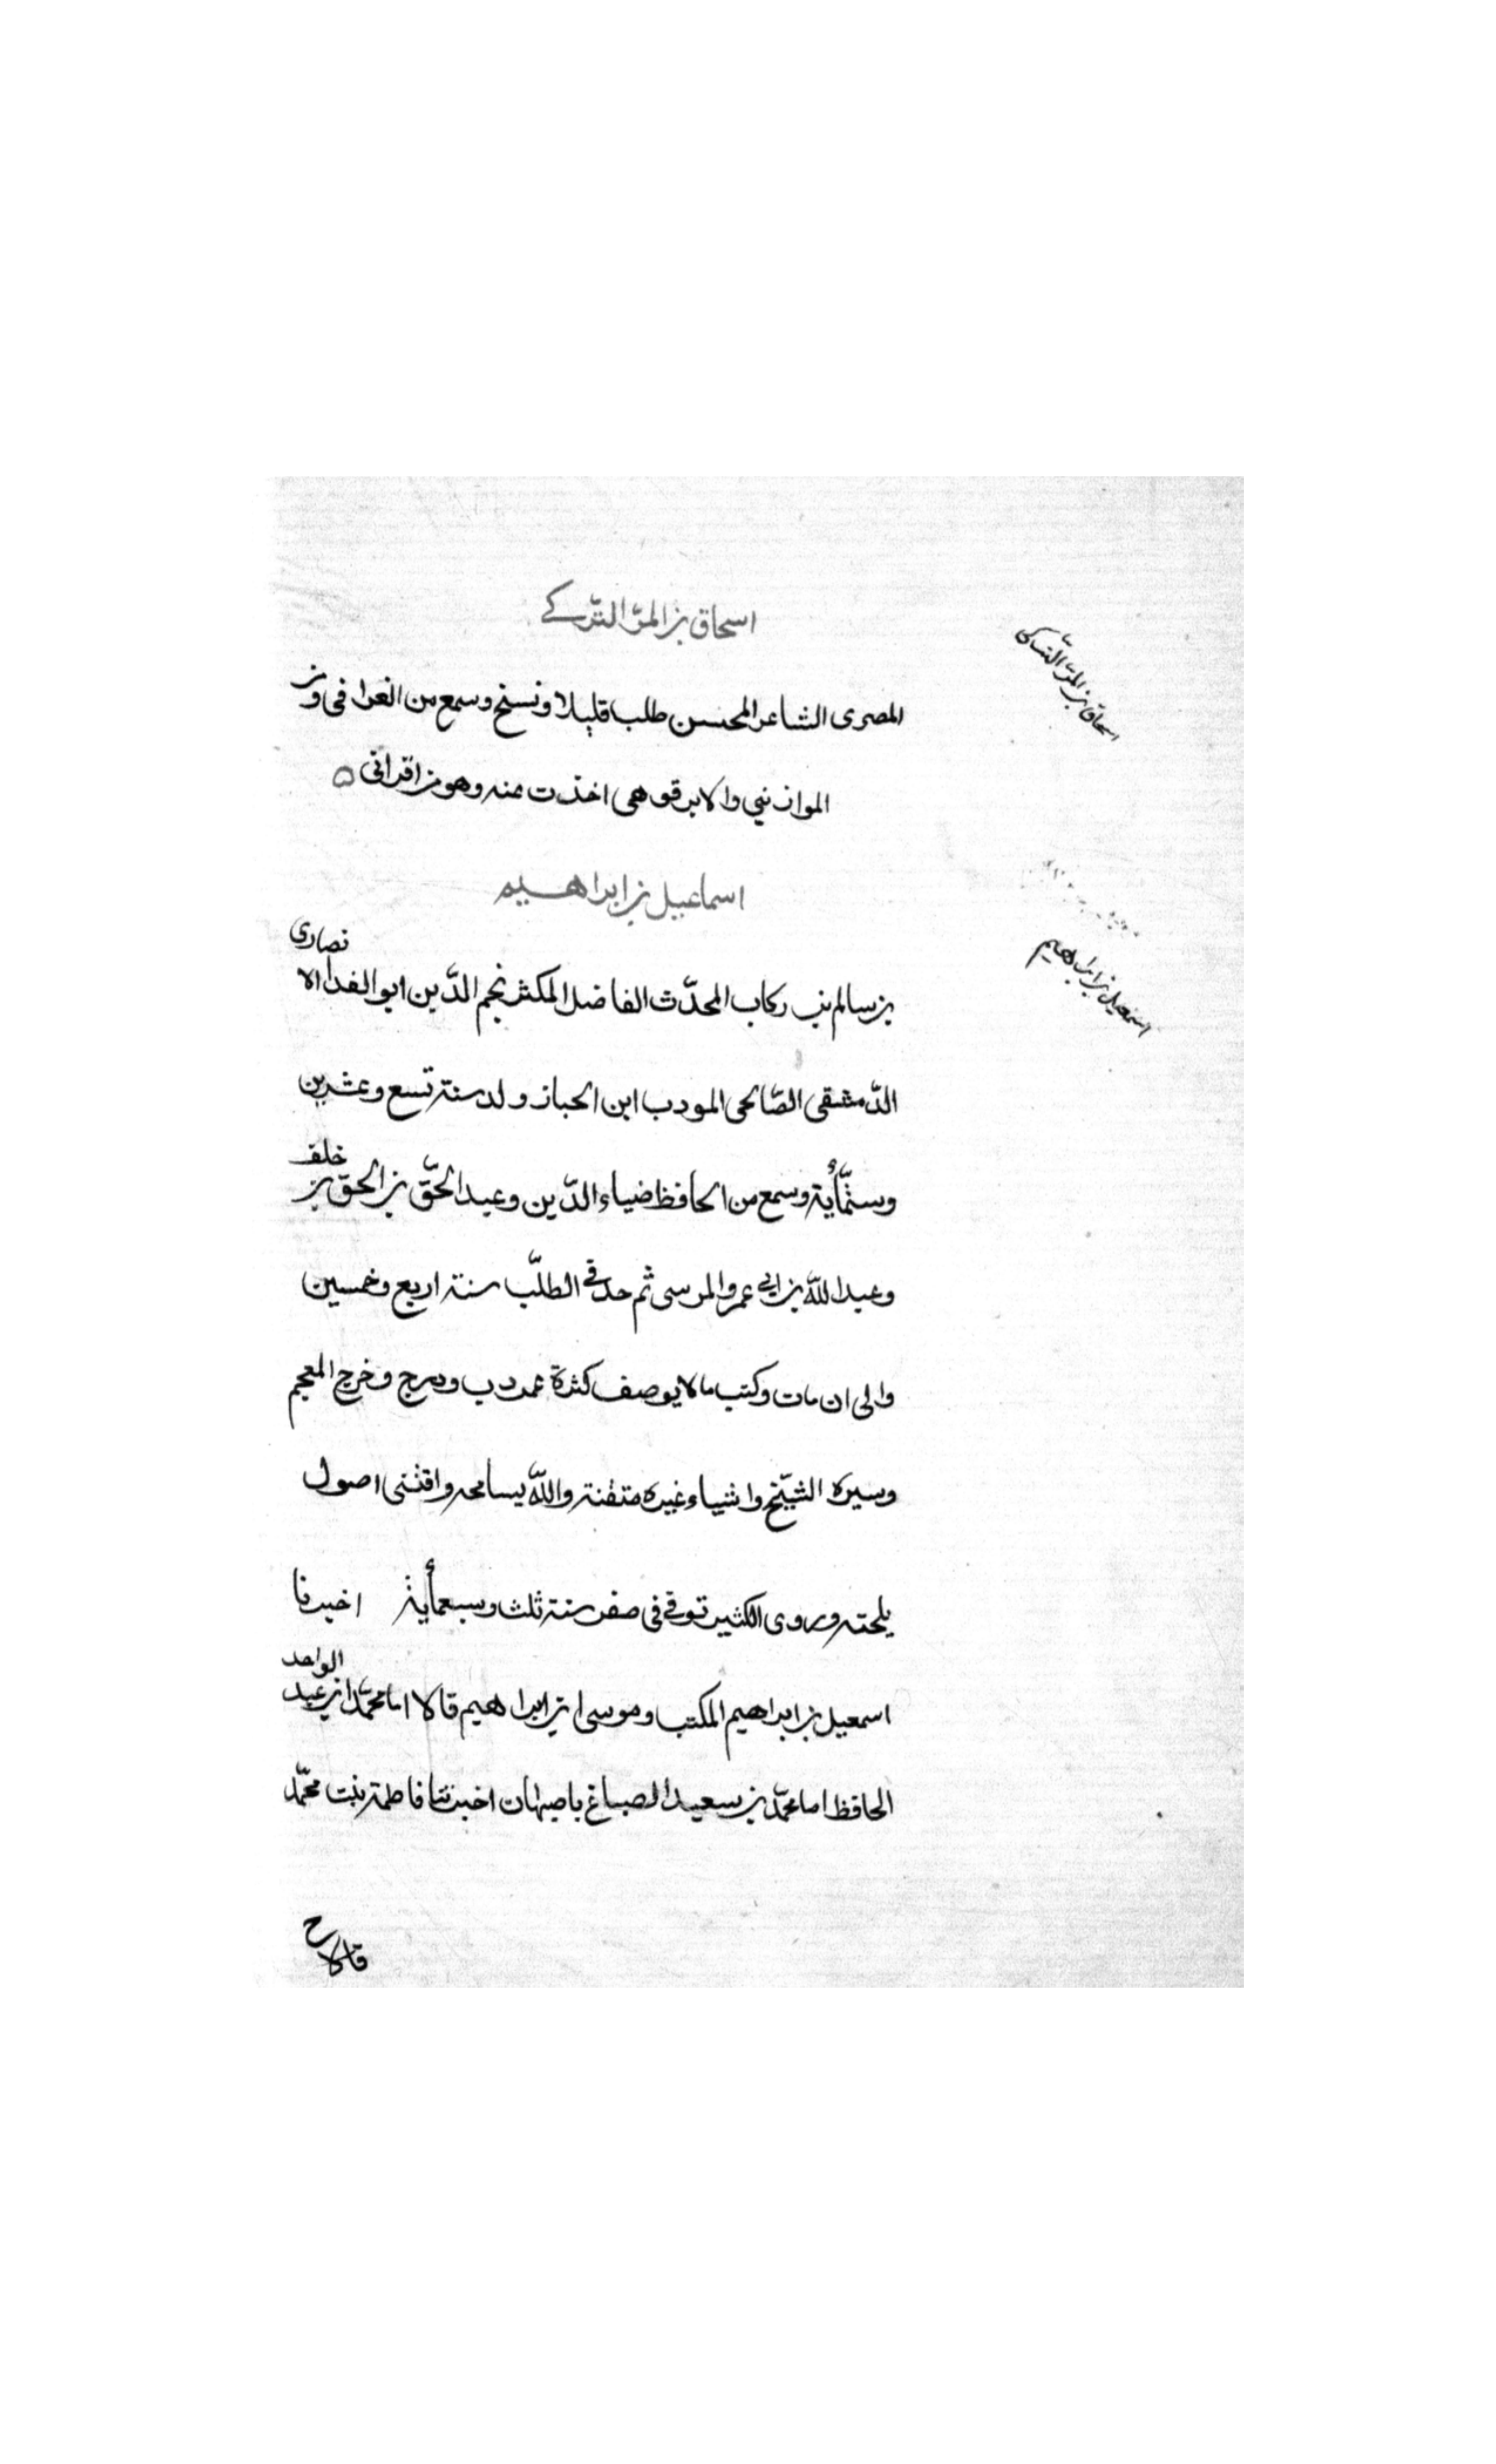 اسحاق بن المر التركى
المصرى الشاعر المحسن طلب قليلا ونسخ وسمع من الغرافى وبن
الموازينى والابرقوهى اخذت منه وهو من اقرانى
اسماعيل بن ابراهيم
بن سالم بن ركاب المحدّث الفاضل المكثر نجم الدّين ابو الفدا الانصارى
الدّمشقى الصّالحى المودب ابن الخباز ولد سنة تسع وعشرين
وستّمأية وسمع من الحافظ ضياء الدّين وعبد الحقّ بن الحق بن خلف
وعبد الله بن ابى عمر والمرسى ثم جد فى الطلّب سنة اربع وخمسين
والى ان مات وكتب مالا يوصف كثرة عمن دب ودرج وخرج المعجم
وسيرة الشّيخ واشياء غيره متقنة والله يسامحه واقتنى اصول
مليحة وروى الكثير توفى فى صفر سنة ثلث وسبعمأية اخبرنا
اسمعيل بن ابراهيم المكتب وموسى بن ابراهيم قالا انا محمّد بن عبد الواحد
الحافظ انا محمّد بن سعيد الصباغ باصبهان اخبرتنا فاطمة بنت محمّد
اسحاق بن المر التركى
اسمعيل بن ابراهيم